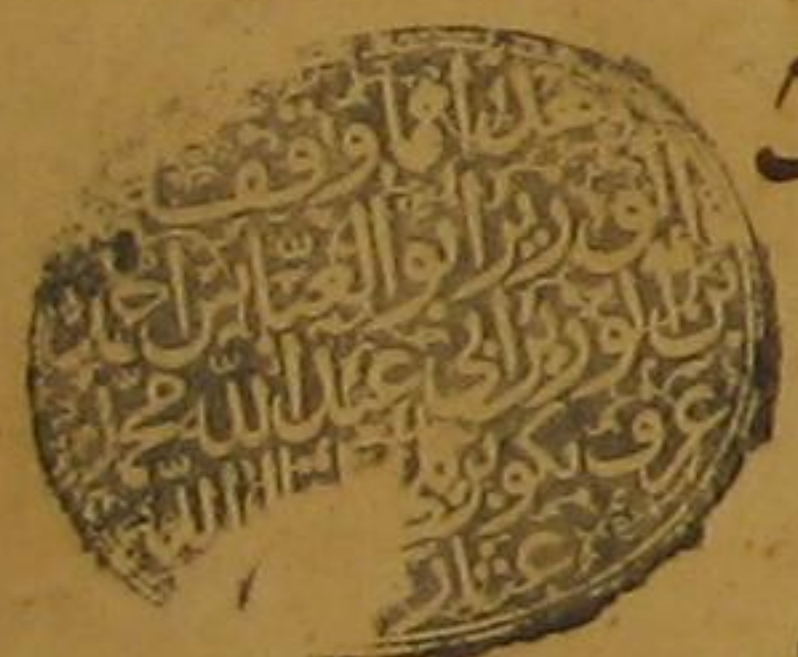 هذا مما وقف
الوزير ابو العباس احمد
بن الوزير ابي عبد الله محمد
عرف بكوبريلي الله
عثار